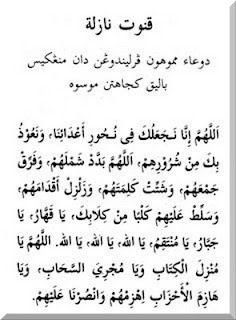 قنوت نازلة
دوعاء مموهون ڤرليندوڠن دان منڠکيس
باليق کجاهتن موسوه
اَللَّهُمَّ إِنَّا نَجْعَلُكَ فِى نُحُورِ أَعْدَائِنَا، وَنَعُوْذُ
بِكَ مِنْ شُرُوْرِهِمْ، اَللَّهُمَّ بَدِّدْ شَمْلَهُمْ، وَفَرِّقْ
جَمْعَهُمْ، وَشَتِّتْ كَلِمَتَهُمْ، وَزَلْزِلْ أَقْدَامَهُمْ،
وَسَلِّطْ عَلَيْهِمْ كَلْبًا مِنْ كِلَابِكَ، يَا قَهَّارُ، يَا
جَبَّارُ، يَا مُنْتَقِمُ، يَا اللهُ، يَا اللهُ، يَا الله. اللَّهُمَّ يَا
مُنْزِلَ الْكِتَابِ وَيَا مُجْرِيَ السَّحَابِ، وَيَا
هَازِمَ الْأَحْزَابِ اِهْزِمْهُمْ وَانْصُرْنَا عَلَيْهِمْ.